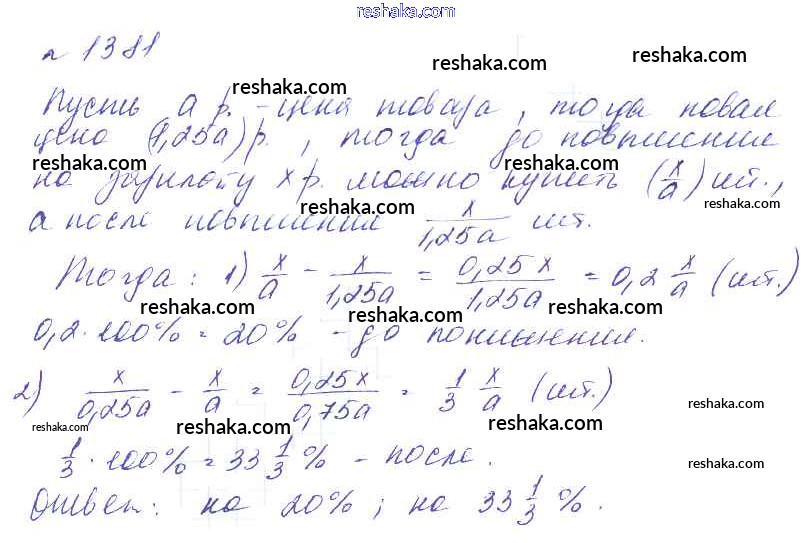 reshaka.com
№ 1381
reshaka.com
reshaka.com
reshaka.com
Пусть a р. - цена товара, тогда новая
цена (1,25a) р., тогда до повышения
reshaka.com
reshaka.com
на зарплату x р. можно купить (x/a) шт.,
reshaka.com
reshaka.com
а после повышения x/1,25a шт.
Тогда: 1) x/a - x/1,25a = 0,25x/1,25a = 0,2 x/a (шт.)
reshaka.com
reshaka.com
reshaka.com
0,2·100% = 20% - до понижения.
2) x/0,25a - x/a = 0,25x/0,75a = 1/3 x/a (шт.)
reshaka.com
reshaka.com
reshaka.com
reshaka.com
1/3·100% = 33 1/3 % - после.
reshaka.com
Ответ: на 20%; на 33 1/3 %.